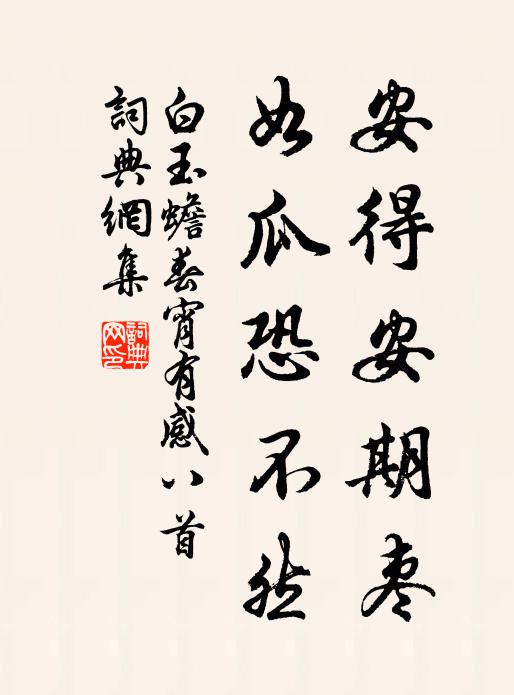 安得安期枣
如瓜恐不然
白玉蟾春宵有感八首
詞典網集
詞典
网印